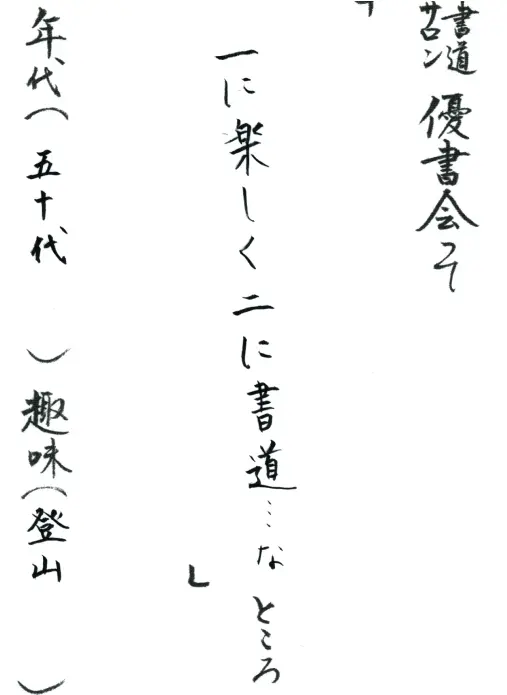 書道サロン 優書会って
「一に楽しく二に書道…なところ」
年代(五十代)趣味(登山)